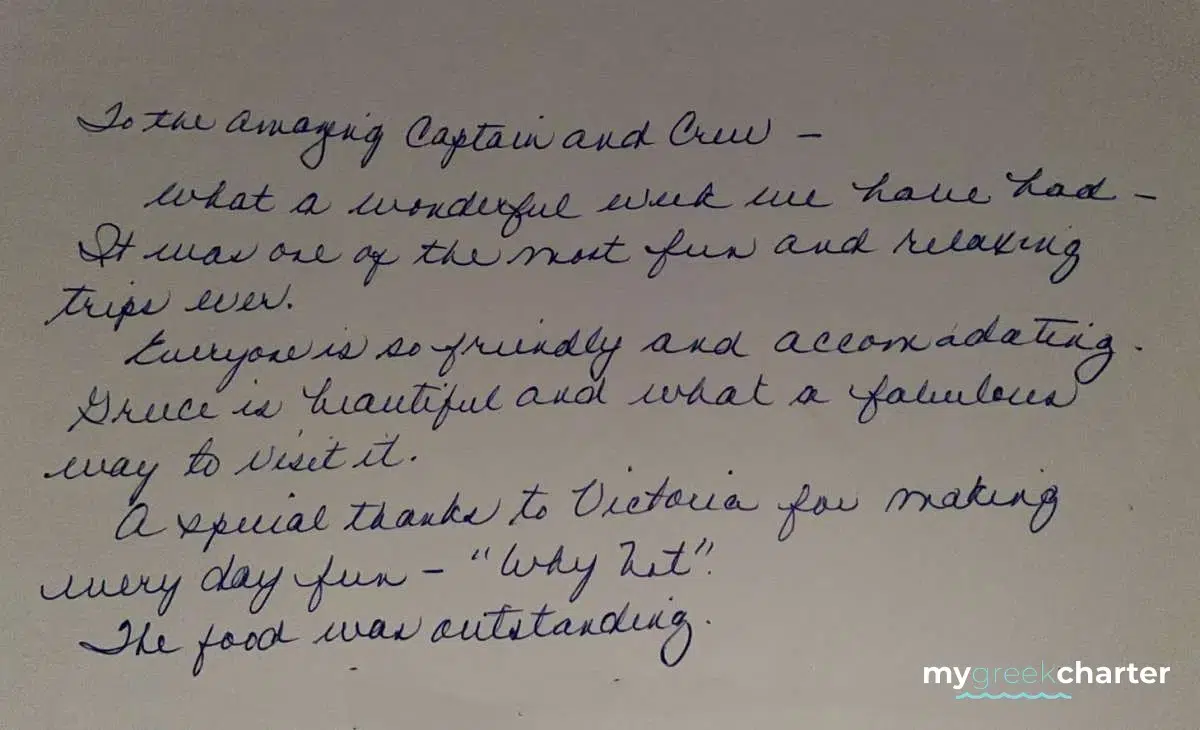 To the amazing Captain and Crew –
What a wonderful week we have had –
It was one of the most fun and relaxing
trips ever.
Everyone is so friendly and accomadating.
Greece is beautiful and what a fabulous
way to visit it.
A special thanks to Victoria for making
every day fun – "Why Not".
The food was outstanding.
mygreekcharter